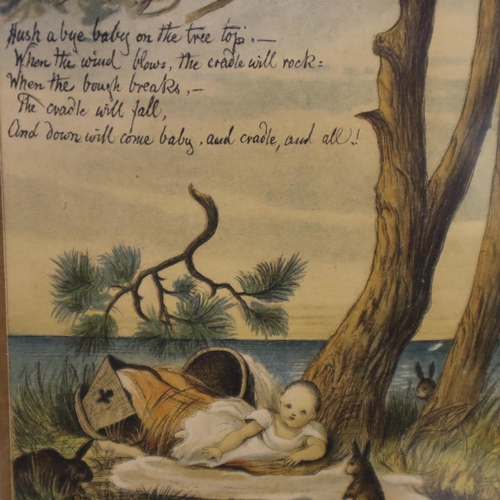 Hush a bye baby on the tree top.—
When the wind blows, the cradle will rock:
When the bough breaks,—
The cradle will fall,
And down will come baby, and cradle, and all!